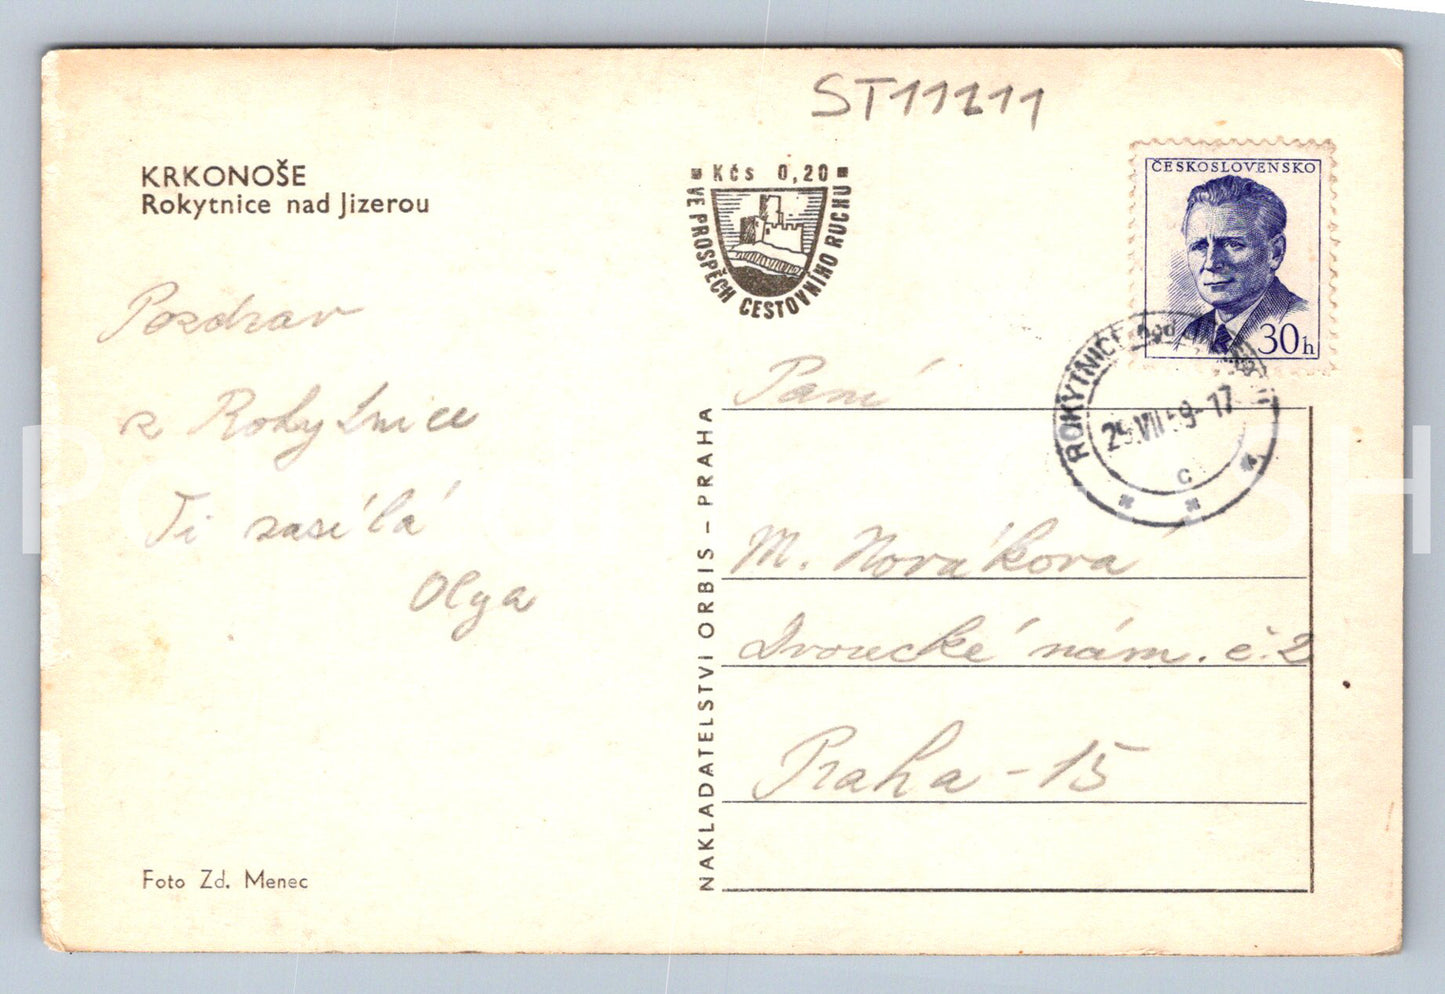 ST11211
KRKONOŠE
Rokytnice nad Jizerou
Kčs 0,20
VE PROSPĚCH CESTOVNÍHO RUCHU
ČESKOSLOVENSKO
30h
ROKYTNICE nad
29.VII 59-17
c
Pozdrav
z Rokytnice
Ti zasílá
Olga
Paní
M. Nováková
Dvorecké nám. č. 2
Praha - 15
NAKLADATELSTVÍ ORBIS – PRAHA
Foto Zd. Menec